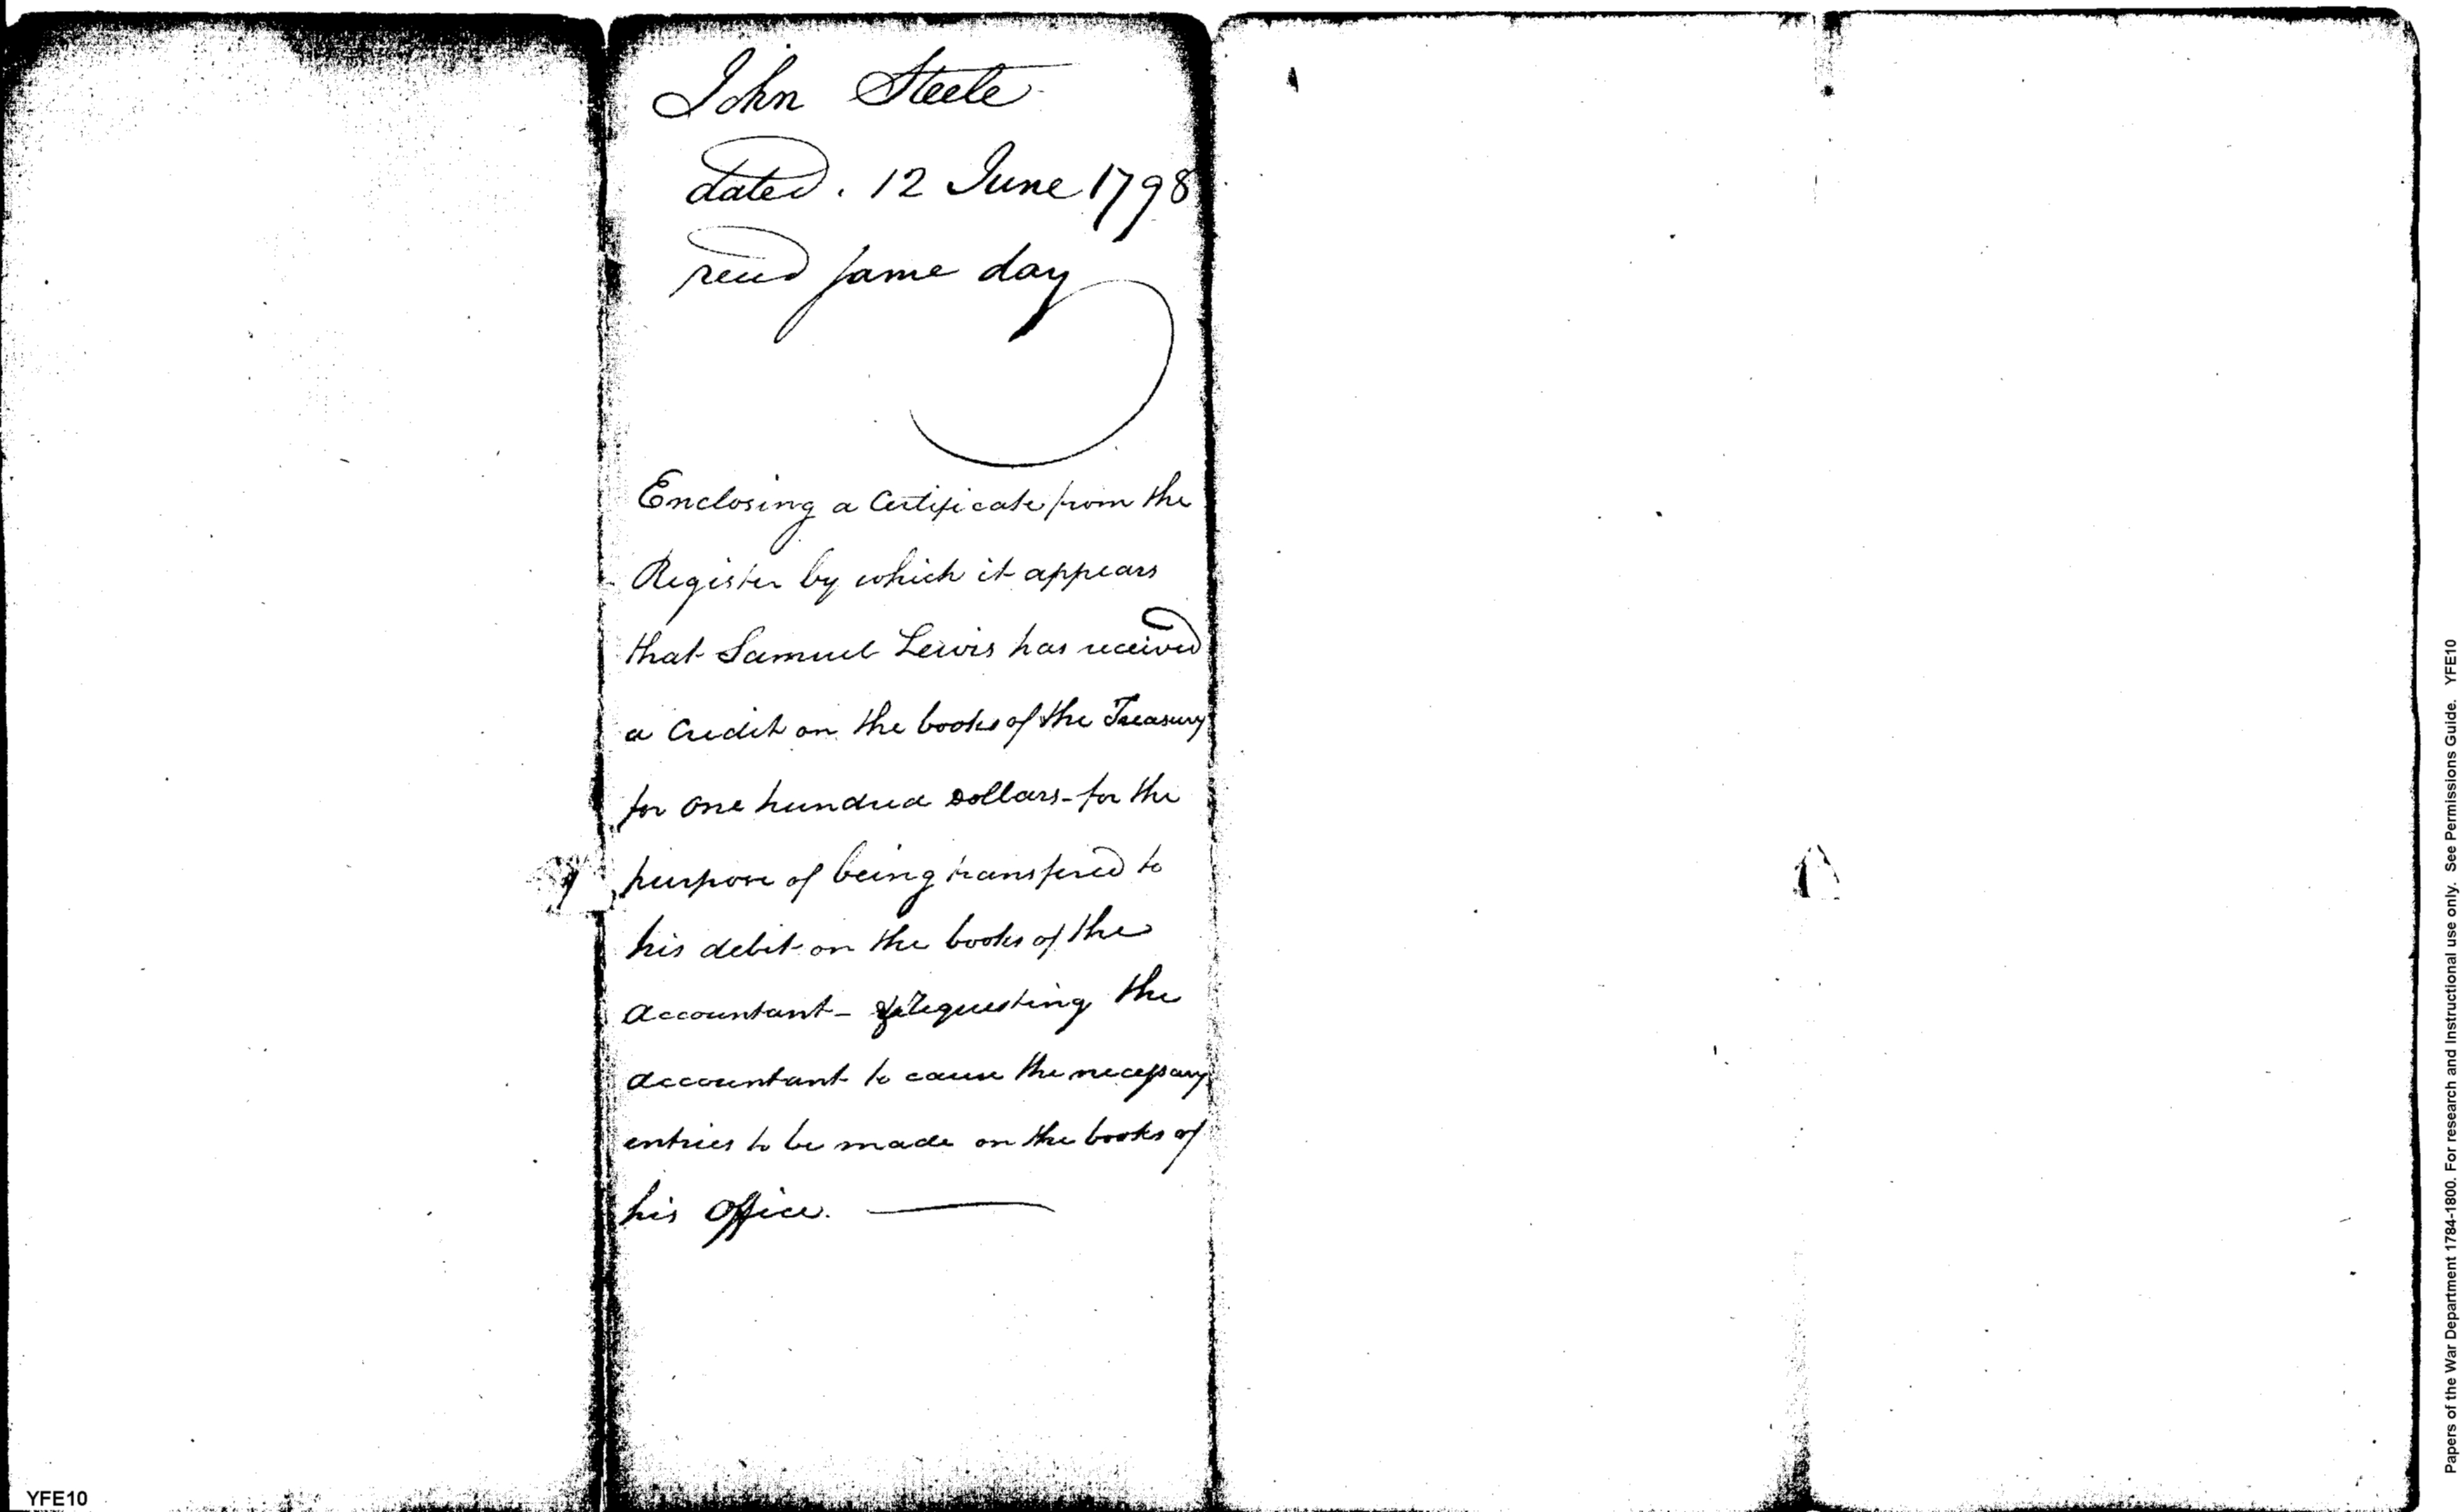 John Steele
dated. 12 June 1798
recd same day
Enclosing a Certificate from the
Register by which it appears
that Samuel Lewis has received
a Credit on the books of the Treasury
for one hundred Dollars - for the
purpose of being transfered to
his debit on the books of the
accountant - & requesting the
accountant to cause the necessary
entries to be made on the books of
his office.
YFE10
Papers of the War Department 1784-1800. For research and Instructional use only. See Permissions Guide. YFE10